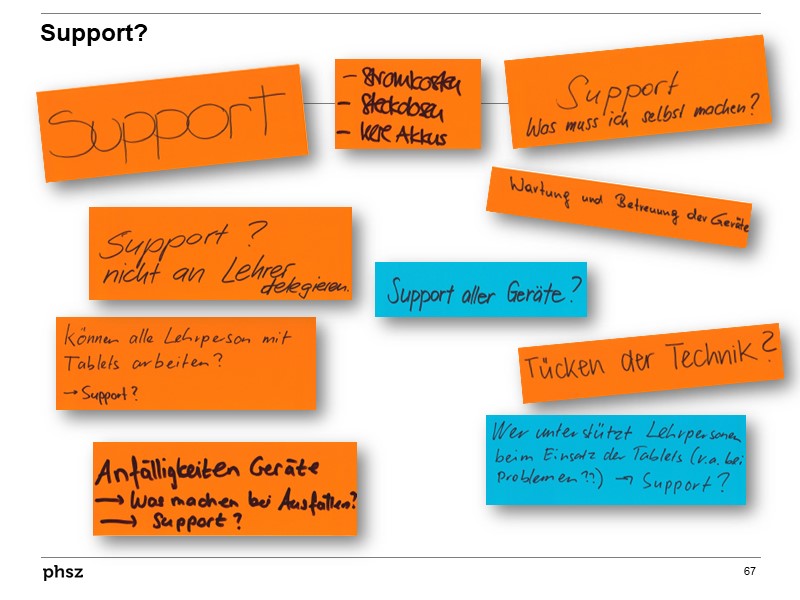 Support?
Support
- Stromkosten
- Steckdosen
- leere Akkus
Support
Was muss ich selbst machen?
Wartung und Betreuung der Geräte
Support?
nicht an Lehrer
delegieren.
Support aller Geräte?
Können alle Lehrperson mit
Tablets arbeiten?
→ Support?
Tücken der Technik?
Wer unterstützt Lehrpersonen
beim Einsatz der Tablets (v.a. bei
Problemen??) → Support?
Anfälligkeiten Geräte
→ Was machen bei Ausfällen?
→ Support?
phsz
67